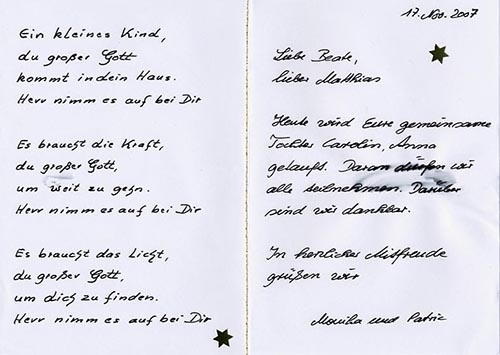 Ein kleines Kind,
du großer Gott
kommt in dein Haus.
Herr nimm es auf bei Dir
Es braucht die Kraft,
du großer Gott,
um weit zu gehn.
Herr nimm es auf bei Dir
Es braucht das Licht,
du großer Gott,
um dich zu finden.
Herr nimm es auf bei Dir
17. Nov. 2007
Liebe Beate,
lieber Matthias
Heute wird Eure gemeinsame
Tochter Carolin, Anna
getauft. Daran dürfen wir
alle teilnehmen. Darüber
sind wir dankbar.
In herzlicher Mitfreude
grüßen wir
Monika und Patric